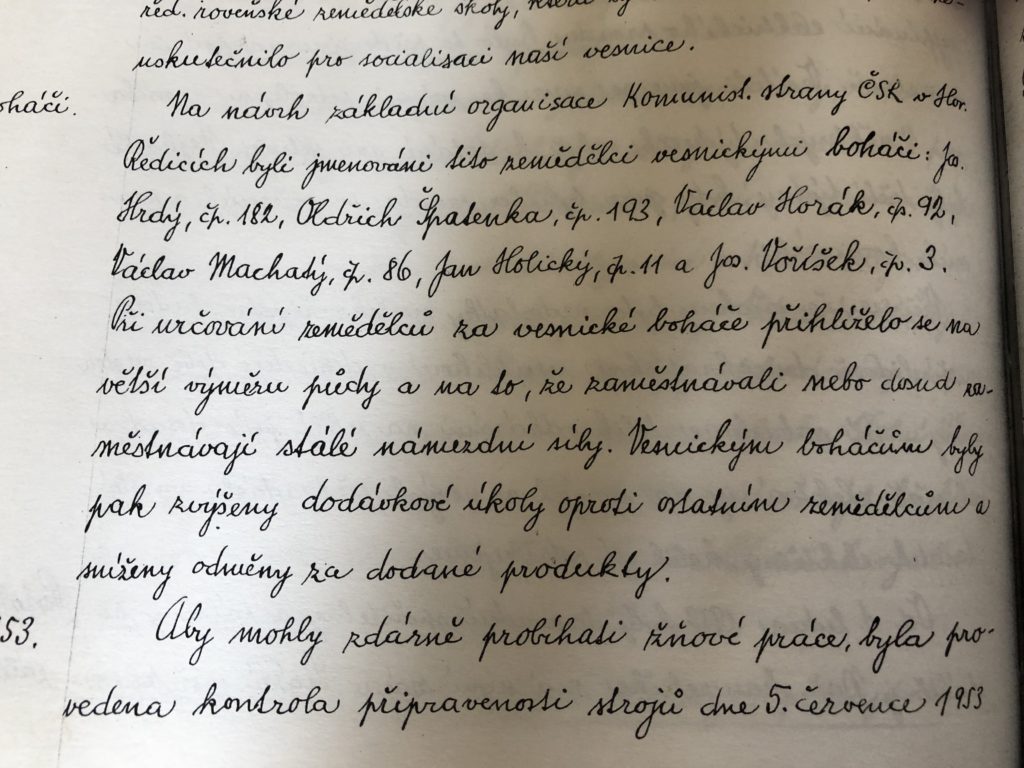 řed. rovenské zemědělské školy, která
uskutečnilo pro socialisaci naší vesnice.
Na návrh základní organisace Komunist. strany ČSR v Hor.
Ředicích byli jmenováni tito zemědělci vesnickými boháči: Jos.
Hrdý, čp. 182, Oldřich Špatenka, čp. 193, Václav Horák, čp. 92,
Václav Machatý, čp. 86, Jan Holický, čp. 11 a Jos. Voříšek, čp. 3.
Při určování zemědělců za vesnické boháče přihlíželo se na
větší výměru půdy a na to, že zaměstnávali nebo dosud za-
městnávají stálé námezdní síly. Vesnickým boháčům byly
pak zvýšeny dodávkové úkoly oproti ostatním zemědělcům a
sníženy odměny za dodané produkty.
53.
Aby mohly zdárně probíhati žňové práce, byla pro-
vedena kontrola připravenosti strojů dne 5. července 1953